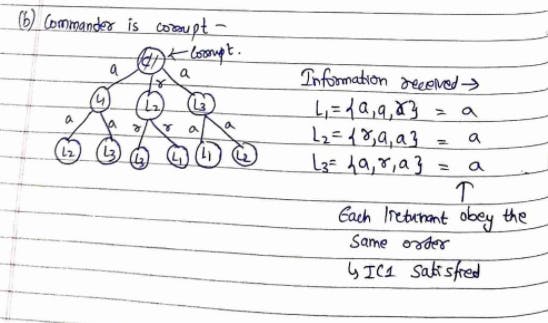 (b) Commander is corrupt –
C/1 ← Corrupt.
a r a
L1 L2 L3
a a r r a a
L2 L3 L3 L1 L1 L2
Information received →
L1 = {a,a,r} = a
L2 = {r,a,a} = a
L3 = {a,r,a} = a
↑
Each lieutenant obey the
same order
↳ IC1 satisfied